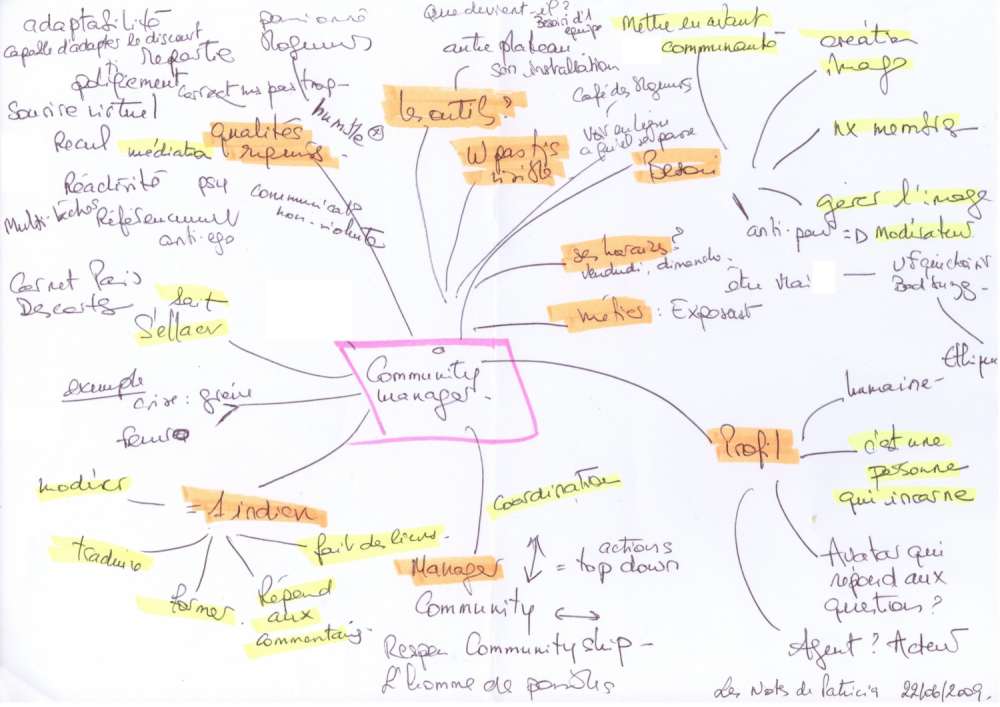 adaptabilité
capable d'adapter le discours
Repartie
politicement correct mais pas trop -
Sourire virtuel
Recul médiation
qualités
Réactivité psy
Multi-tâches Référencement
anti-ego
passionné
blogueurs
humble
communicate
non-violente
Que devient-il?
Besoin d'1
équipe
autre plateau
son installation
les outils?
W pas tjs
visible
Café des blogueurs
Voir en ligne
ce qu'il se passe
Besoin
Mettre en avant
communauté
création
image
nx membres
gérer l'image
anti-peur => Modérateur
être vrai
Bad buzz -
Ethique
ses horaires?
vendredi, dimanche.
métier: Exposant
Carnet Paris
Descartes
sait
S'effacer
exemple
crise: grève
Community
manager -
= 1 indien
modérer
traduire
former
Répond
aux
commentaires
fait des liens -
coordination
Manager
= actions
top down
Community
Community ship -
L'homme de possibles
Profil
humaine -
c'est une
personne
qui incarne
Avatar qui
répond aux
questions?
Agent? Acteur
Les Notes de Patricia 22/06/2009.